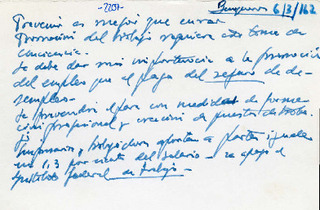 -2251-
6/3/162
Prevenir es mejor que curar
Promoción del trabajo requiere esta toma de
conciencia.
Se debe dar más importancia a la promoción
del empleo que el pago del seguro de de-
sempleo.
Se prevendrá el paro con medidas de forma-
ción profesional y creación de puestos de trabajo.
Empresarios y trabajadores aportan a partes iguales
un 1,3 por ciento del salario - en apoyo al
Instituto federal de trabajo -